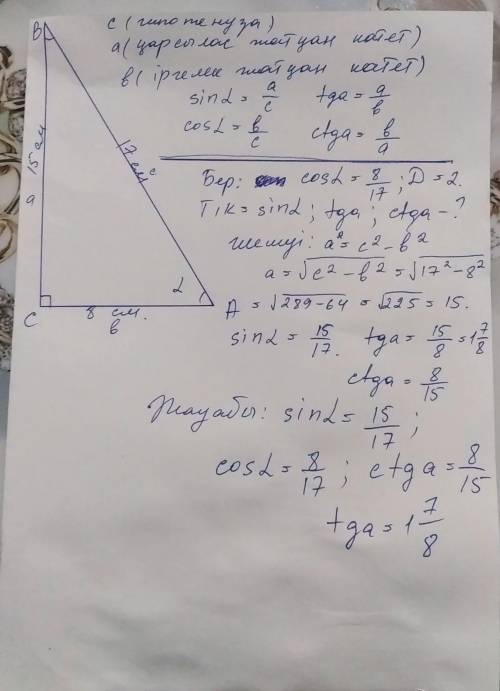 c (гипотенуза)
a (қарсылас жатқан катет)
в (іргелек жатқан катет)
sinα = a/c   tga = a/в
cosα = в/c   ctga = в/a
B
15 см
a
17 см c
C
8 см.
в
α
A
Бер: cosα = 8/17; D = 2.
Т/к = sinα; tga; ctga - ?
шешуі: a² = c² - в²
a = √c² - в² = √17² - 8²
= √289-64 = √225 = 15.
sinα = 15/17. tga = 15/8 = 1 7/8
ctga = 8/15
Жауабы: sinα = 15/17;
cosα = 8/17; ctga = 8/15
tga = 1 7/8